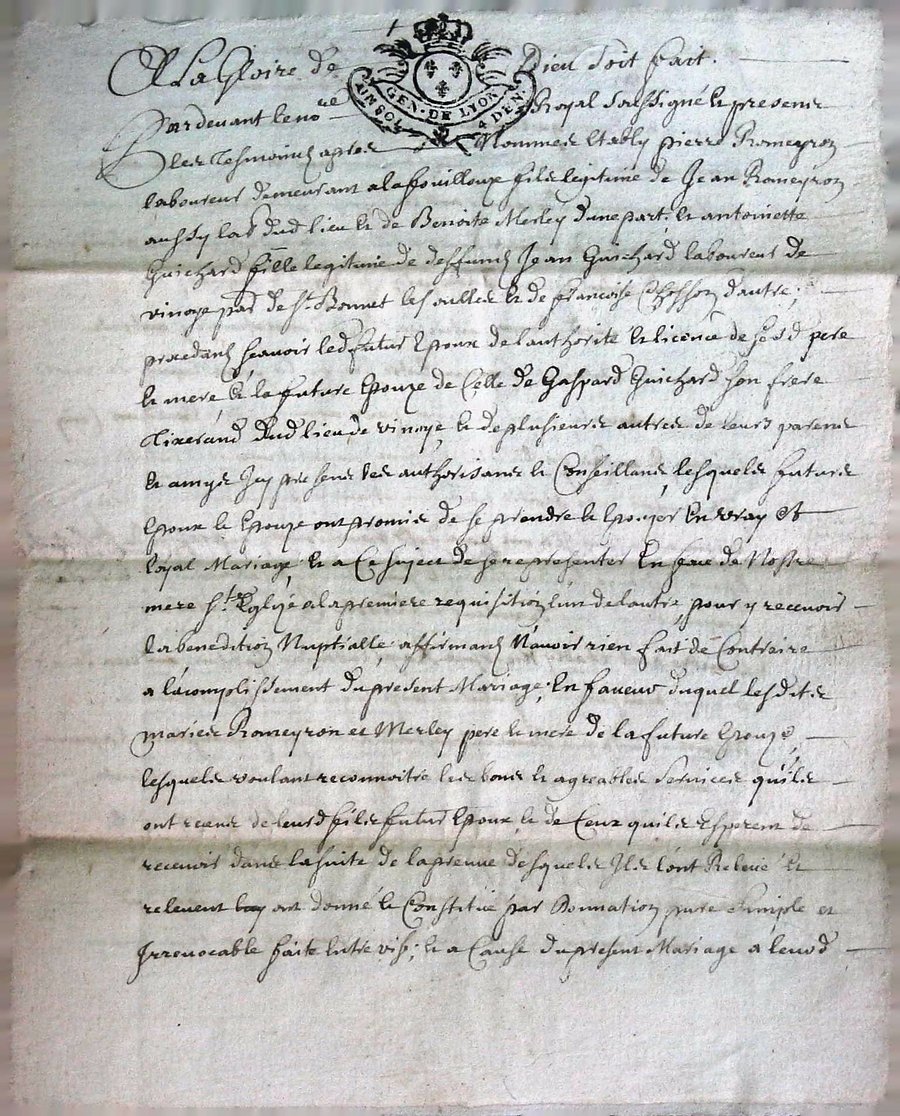 A La Gloire de Dieu Soit fait.
GEN. DE LYON
UN SOL 4 DEN.
Pardevant le no.re Royal soussigné & presens
Les Tesmoins apres Nommes estably pierre Romeyron
laboureur demeurant a la fouillouze fils legitime de Jean Romeyron
aussy lab.r dud lieu & de Benoite Merley dune part, & antoinette
Guichard fille legitime de deffunct Jean Guichard laboureur de
vinoye par de St Bonnet les oulles & de francoise Chosson dautre;
procedant scavoir led futur Epoux de l'authorité & licence de sesd pere
& mere, & la future Epouze de Celle de Gaspard Guichard son frere
Tixerand dud lieu de vinoye, & de plusieurs autres de leurs parens
& amys Icy presens les authorisans & Conseillans, lesquels futurs
Epoux & Epouze ont promis de se prendre & Epouzer En vray et
loyal Mariage, & a Ce sujet de se representer En face de Nostre
mere S.te Eglize a la premiere requisition lun de lautre, pour y recevoir
la benedition Nuptialle, affirmant N'avoir rien fait de Contraire
a lacomplissement du present Mariage; En faveur duquel lesdits
maries Romeyron et Merley pere & mere de la future Epouze,
lesquels voulant reconnoitre les bons & agreables services qu'ils
ont receus de leurd fils futur Epoux, & de Ceux quils Esperent de
recevoir dans la suite de la preuve desquels Ils lont Relevé &
relevent ont donné & Constitué par Donnation pure simple et
Irrevocable faite Entre vifs; & a Cause du present Mariage a leurd